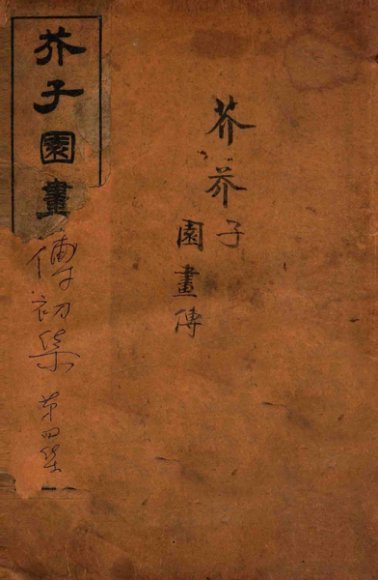 芥芥子
園畫傳
芥子園畫傳初集 第四集